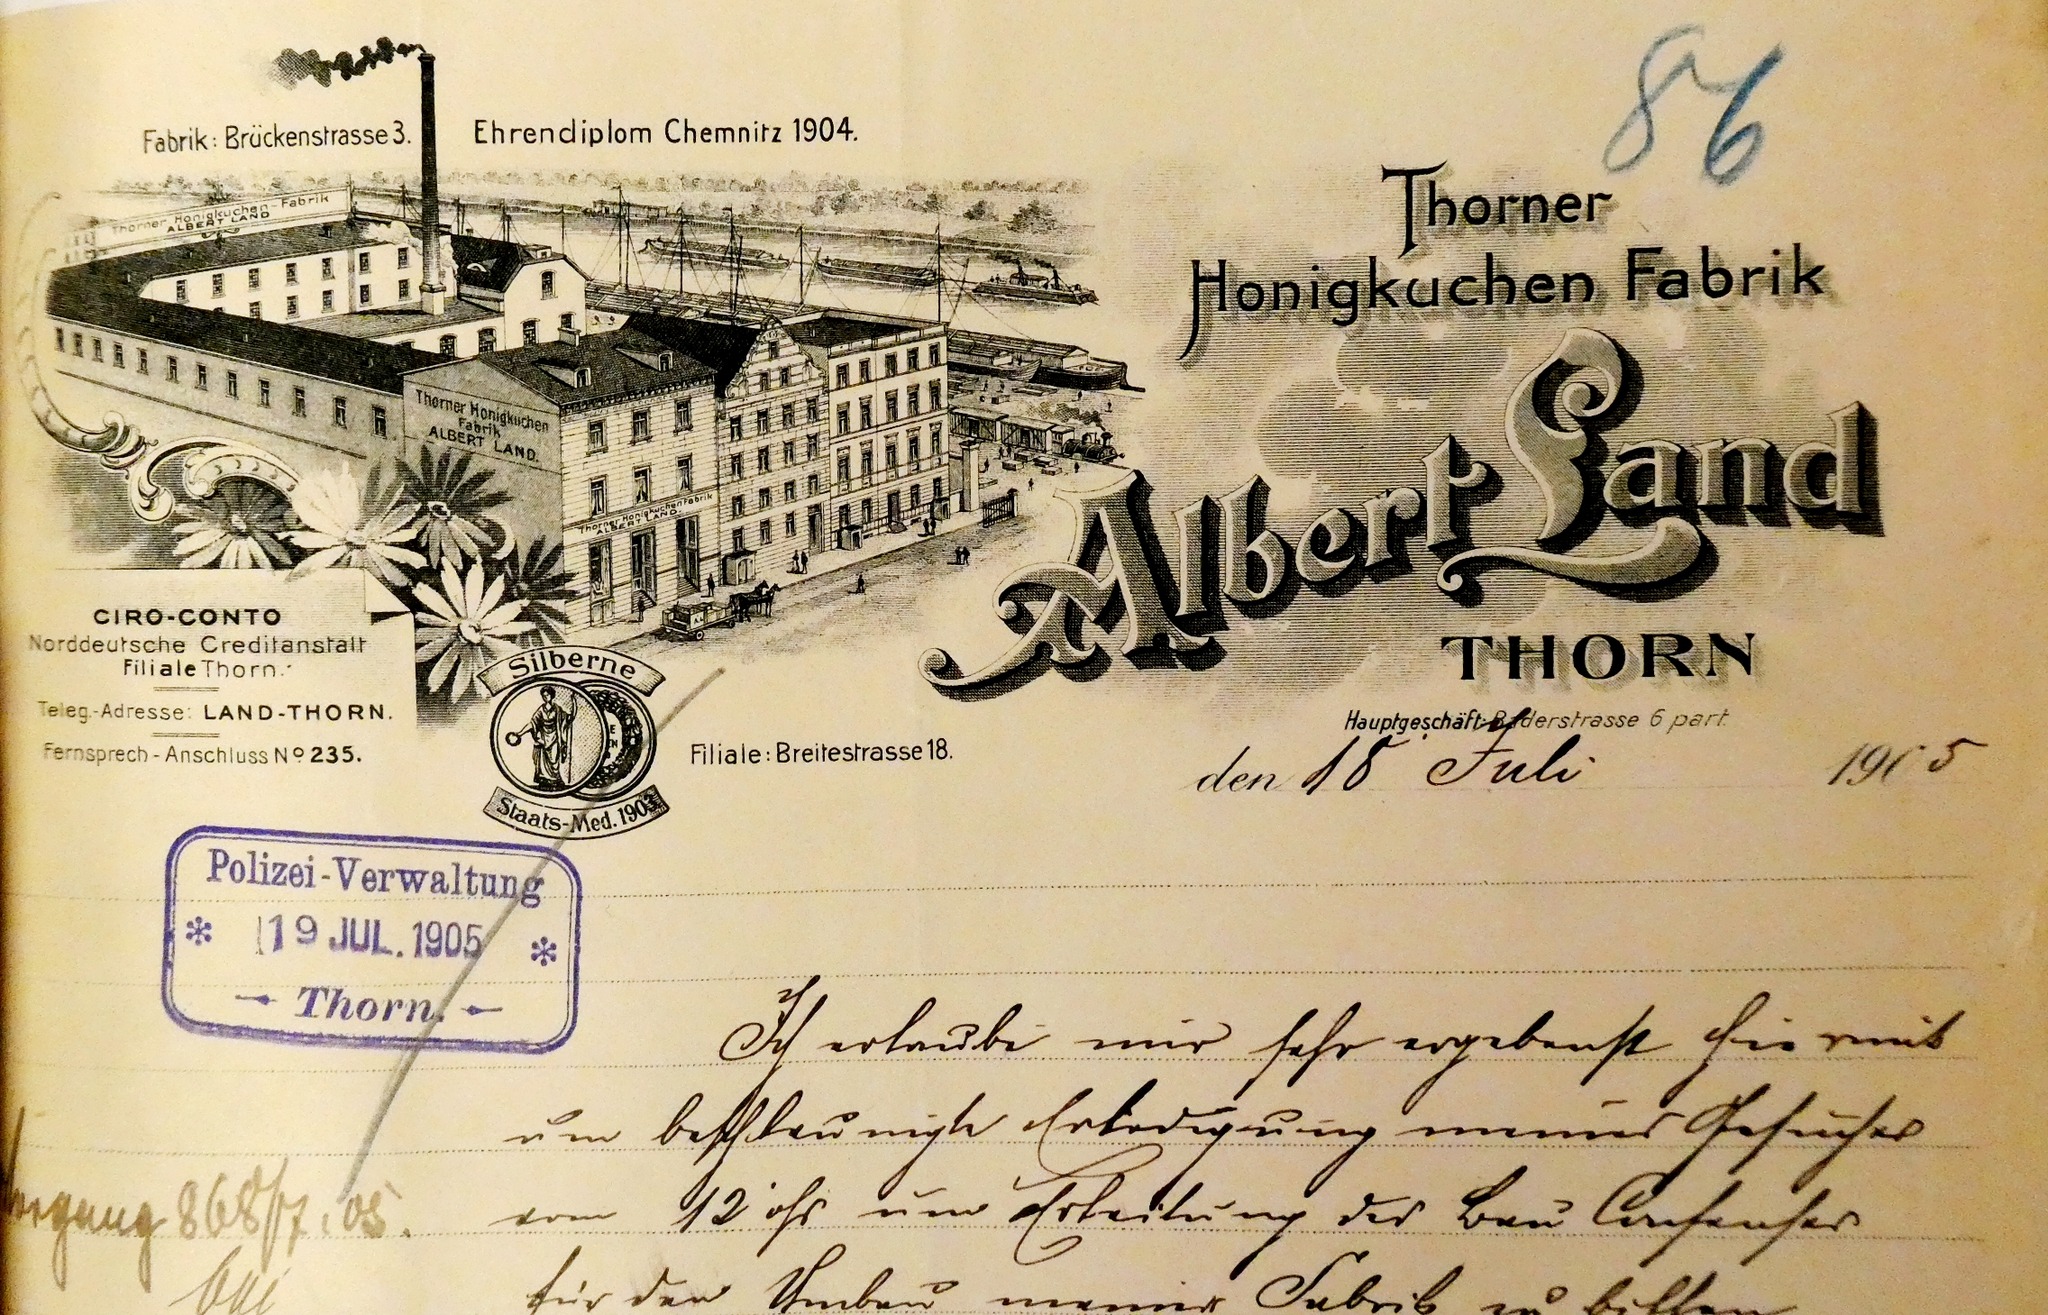 86
Fabrik: Brückenstrasse 3.
Ehrendiplom Chemnitz 1904.
Thorner Honigkuchen-Fabrik
ALBERT LAND
Thorner Honigkuchen
Fabrik
ALBERT LAND.
Thorner Honigkuchen Fabrik
ALBERT LAND.
Thorner
Honigkuchen Fabrik
Albert Land
THORN
Hauptgeschäft: Bäderstrasse 6 part.
CIRO-CONTO
Norddeutsche Creditanstalt
Filiale Thorn.
Teleg.-Adresse: LAND-THORN.
Fernsprech-Anschluss No 235.
Silberne
Staats-Med. 190
Filiale: Breitestrasse 18.
den 18 Juli 1905
Polizei-Verwaltung
* 19 JUL. 1905 *
Thorn.
Ich erlaube mir sehr ergebenst hiermit
um beschleunigte Erledigung meines Gesuches
vom 12 ofs um Erteilung des Bau Consenses
für den Umbau meiner Fabrik zu bitten
868/7.05.